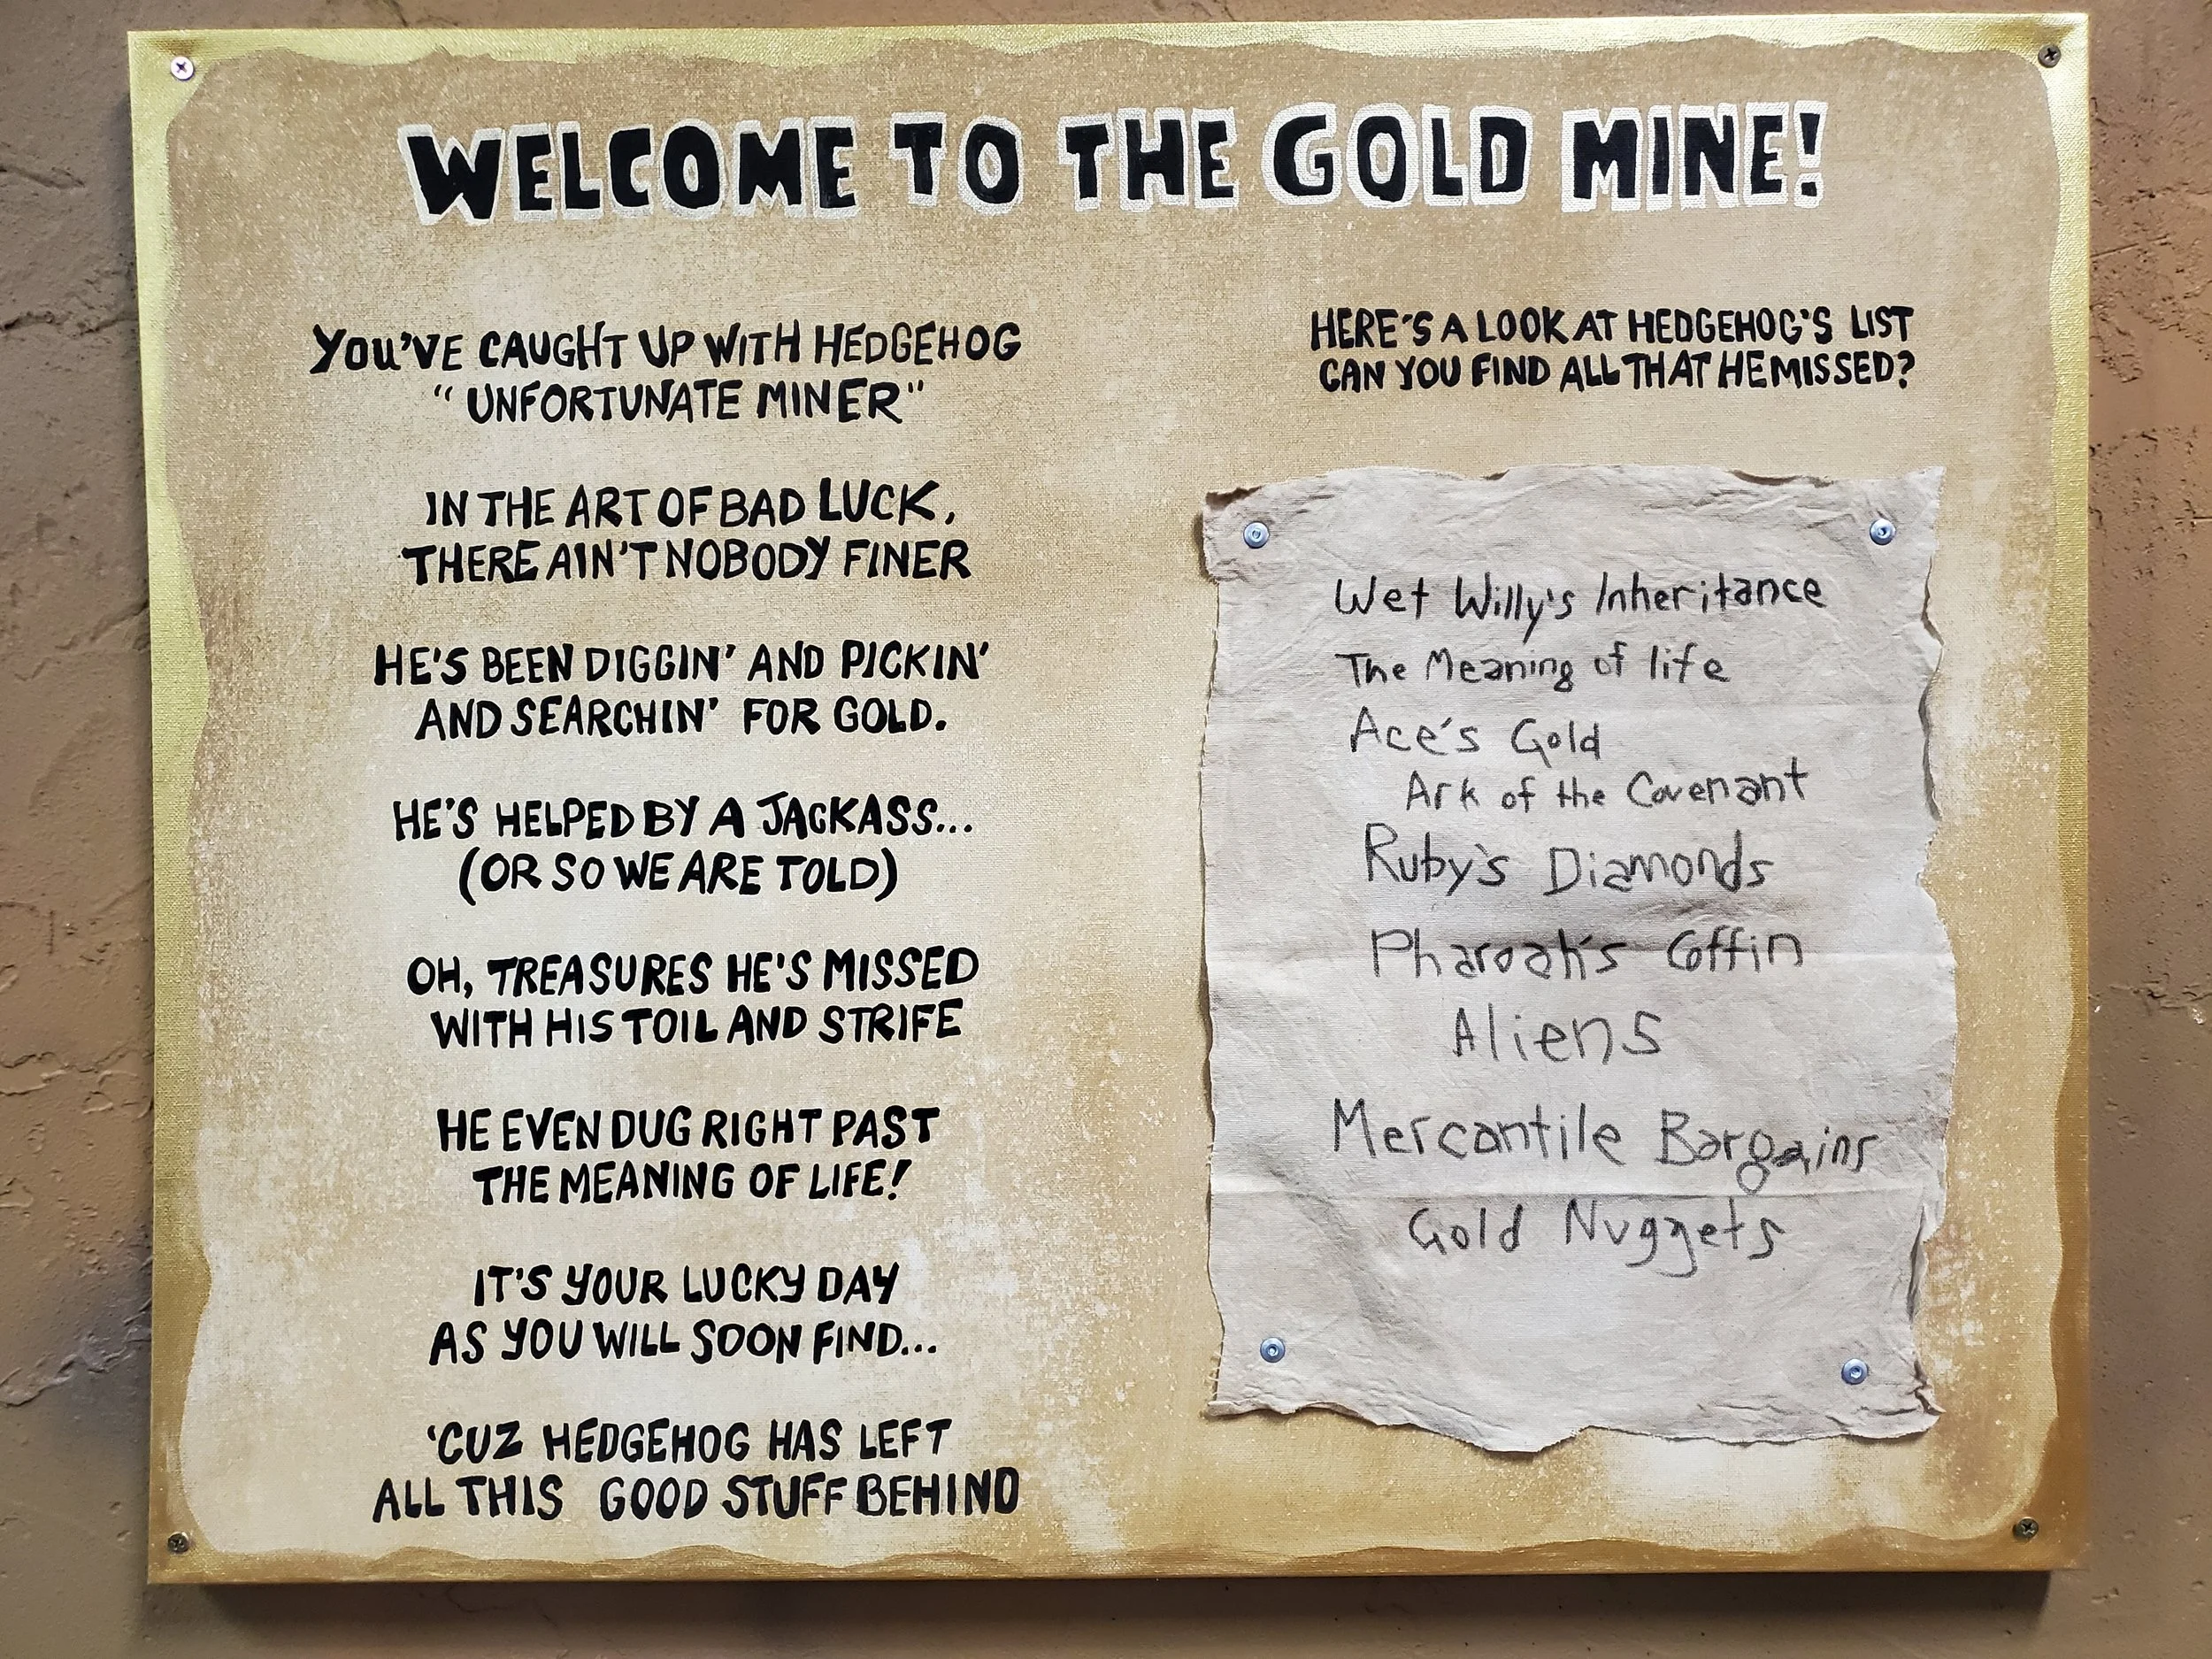 WELCOME TO THE GOLD MINE!
YOU'VE CAUGHT UP WITH HEDGEHOG
"UNFORTUNATE MINER"
IN THE ART OF BAD LUCK,
THERE AIN'T NOBODY FINER
HE'S BEEN DIGGIN' AND PICKIN'
AND SEARCHIN' FOR GOLD.
HE'S HELPED BY A JACKASS...
(OR SO WE ARE TOLD)
OH, TREASURES HE'S MISSED
WITH HIS TOIL AND STRIFE
HE EVEN DUG RIGHT PAST
THE MEANING OF LIFE!
IT'S YOUR LUCKY DAY
AS YOU WILL SOON FIND...
'CUZ HEDGEHOG HAS LEFT
ALL THIS GOOD STUFF BEHIND
HERE'S A LOOK AT HEDGEHOG'S LIST
CAN YOU FIND ALL THAT HE MISSED?
Wet Willy's Inheritance
The Meaning of life
Ace's Gold
Ark of the Covenant
Ruby's Diamonds
Pharoah's Coffin
Aliens
Mercantile Bargains
Gold Nuggets